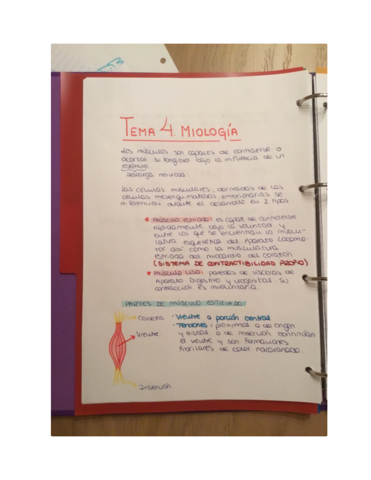 TEMA 4. MIOLOGÍA
Los músculos son capaces de contraerse o
acortar su longitud bajo la influencia de un
estímulo.
descarga nerviosa.
Las células musculares, derivadas de las
células mesenquimatosas embrionarias se
diferencian durante el desarrollo en 2 tipos
Músculo estriado: es capaz de contraerse
rápidamente bajo la voluntad y
entre los que se encuentran la muscu-
latura esquelética del Aparato Locomo-
tor así como la musculatura
estriada del miocardio del corazón
(SISTEMA DE CONTRACTIBILIDAD PROPIO)
Músculo liso: paredes de vísceras de
Aparato digestivo y urogenital. Su
contracción es involuntaria.
PARTES DE MÚSCULO ESTRIADO:
Cabeza
Vientre
Inserción
Vientre o porción central
Tendones: proximal o de origen
y distal o de inserción continúan
el vientre y son formaciones
fibrilares de color nacarado.